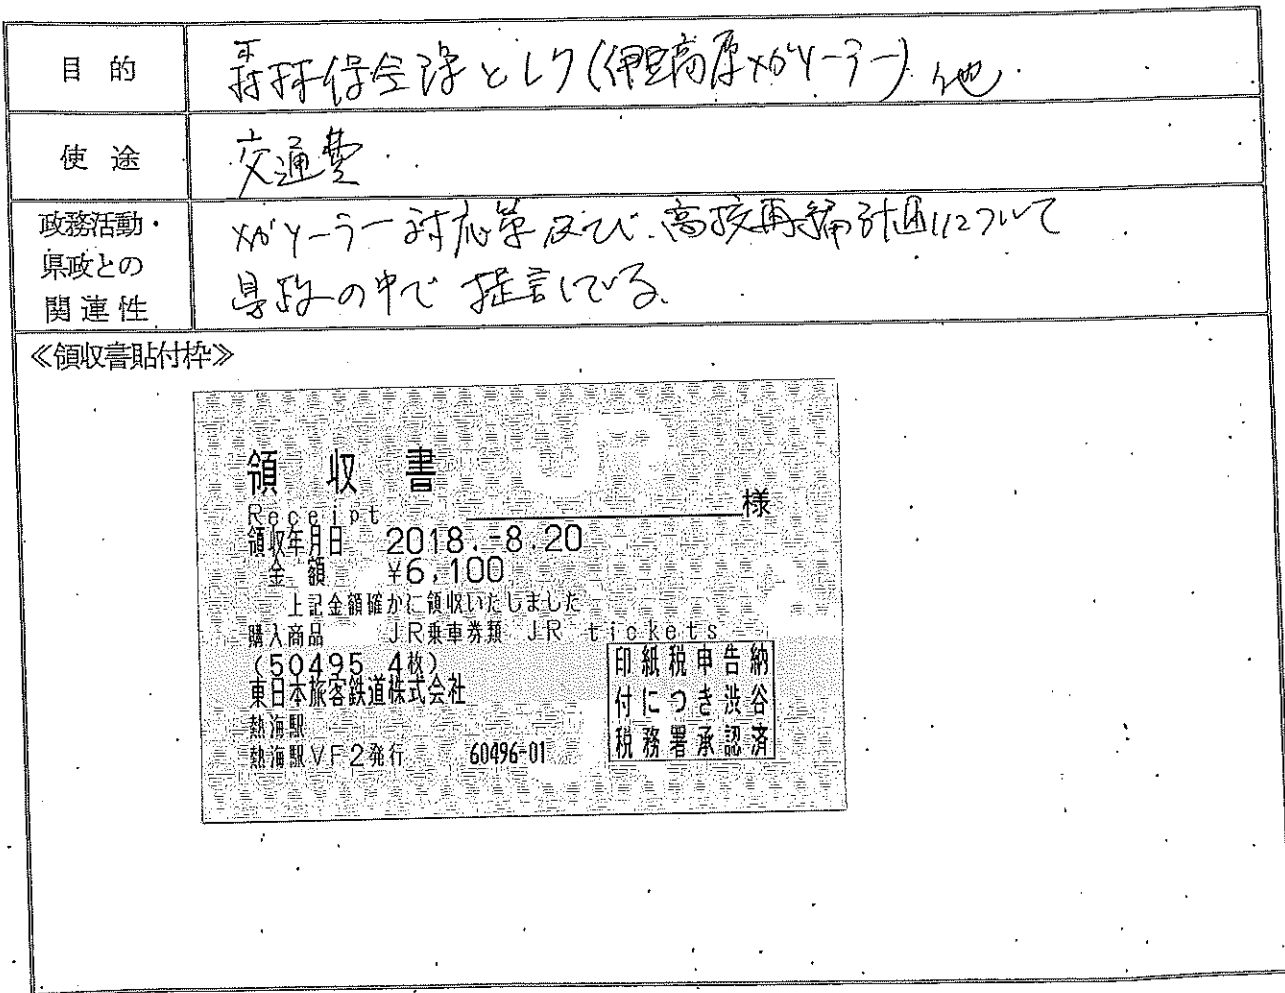 目的
森林保全課とレク(伊豆高原メガソーラー)他
使途
交通費
政務活動・
県政との
関連性
メガソーラー対応策及び、高校再編計画について
県政の中で提言している。
≪領収書貼付枠≫
領収書
Receipt 様
領収年月日 2018.-8.20
金額 ¥6,100
上記金額確かに領収いたしました
購入商品 JR乗車券類 JR tickets
(50495 4枚)
東日本旅客鉄道株式会社
熱海駅
熱海駅VF2発行 60496-01
印紙税申告納
付につき渋谷
税務署承認済
JR